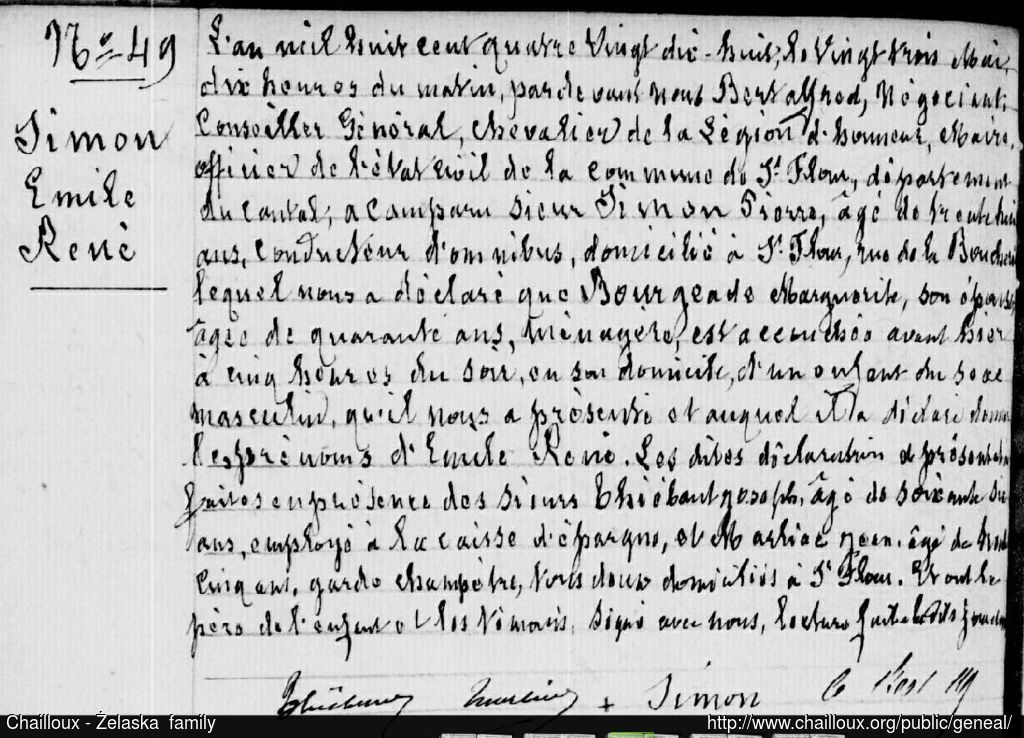 Nº 49
Simon
Emile
René
L'an mil huit cent quatre vingt dix-huit, le vingt trois Mai,
dix heures du matin, par devant nous Bert Alfred, Négociant,
Conseiller Général, Chevalier de la Légion d'honneur, Maire,
officier de l'état civil de la commune de St Flour, département
du Cantal, a comparu sieur Simon Pierre, âgé de trente huit
ans, conducteur d'omnibus, domicilié à St Flour, rue de la Boucherie
lequel nous a déclaré que Bourgeade Marguerite, son épouse,
âgée de quarante ans, ménagère, est accouchée avant hier
à cinq heures du soir, en son domicile, d'un enfant du sexe
masculin, qu'il nous a présenté et auquel il a déclaré donner
les prénoms d'Emile René. Les dites déclaration et présentation
faites en présence des sieurs Thiébaut Joseph, âgé de soixante six
ans, employé à la caisse d'épargne, et Marliac Jean, âgé de trente
cinq ans, garde champêtre, tous deux domiciliés à St Flour. Et ont le
père de l'enfant et les témoins, signé avec nous, lecture faite
Simon
Chailloux - Żelaska family
http://www.chailloux.org/public/geneal/